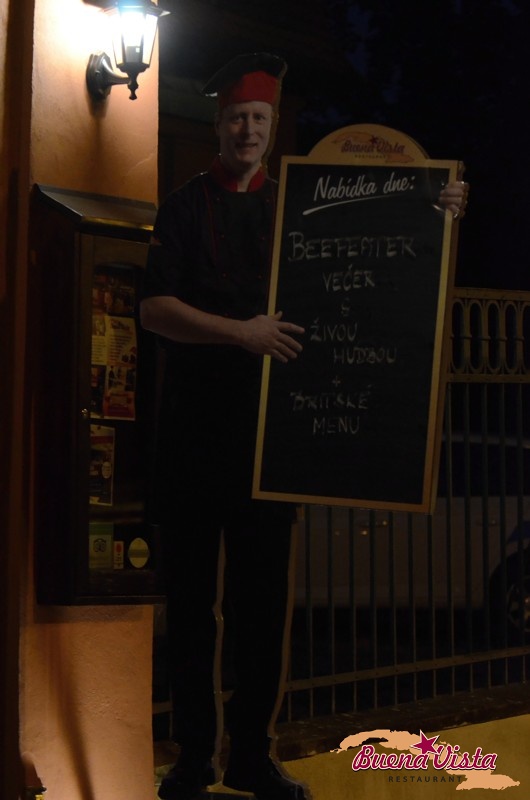 Buena Vista
RESTAURANT
Nabídka dne:
BEEFEATER
VEČER
S
ŽIVOU
HUDBOU
+
BRITSKÉ
MENU
Buena Vista
RESTAURANT